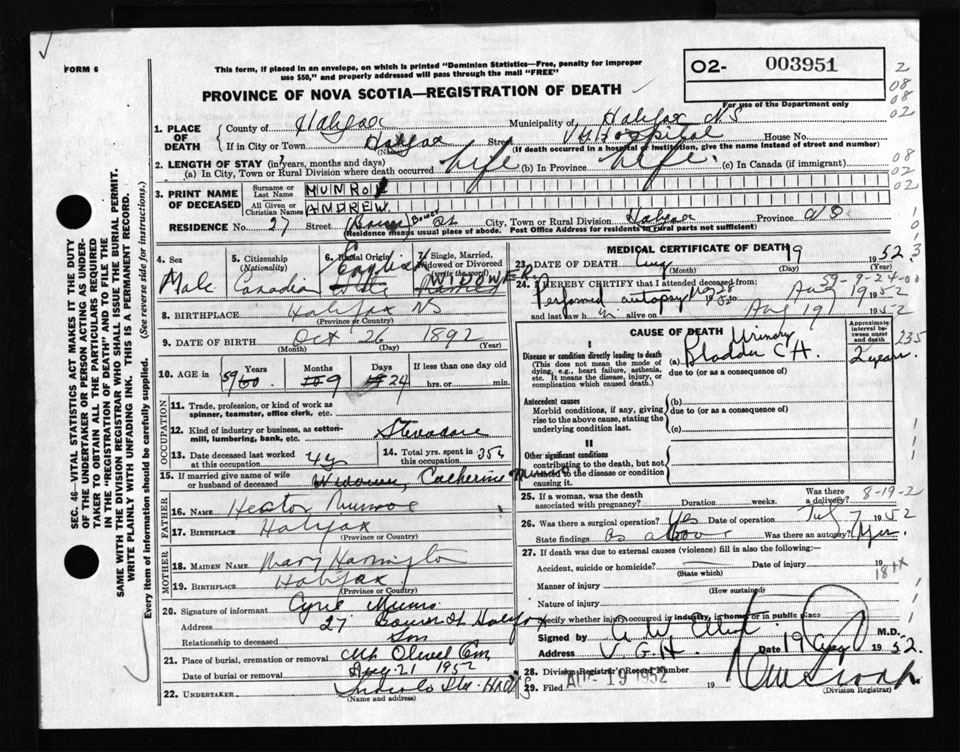 FORM 6
This form, if placed in an envelope, on which is printed "Dominion Statistics—Free, penalty for improper
use $50," and properly addressed will pass through the mail "FREE"
O2- 003951
For use of the Department only
PROVINCE OF NOVA SCOTIA—REGISTRATION OF DEATH
1. PLACE OF DEATH
County of Halifax Municipality of Halifax NS
If in City or Town Halifax Street V.G. Hospital House No.
(Name)
(If death occurred in a hospital of institution, give the name instead of street and number)
2. LENGTH OF STAY (in years, months and days)
(a) In City, Town or Rural Division where death occurred life (b) In Province life. (c) In Canada (if immigrant)
3. PRINT NAME OF DECEASED
Surname or Last Name MUNROE
All Given or Christian Names ANDREW
RESIDENCE No. 27 Street Bauer St City, Town or Rural Division Halifax Province NS
(Residence means usual place of abode. Post Office Address for residents in rural parts not sufficient)
4. Sex Male
5. Citizenship (Nationality) Canadian
6. Racial Origin English
7. Single, Married, Widowed or Divorced (write the word) WIDOWER
8. BIRTHPLACE Halifax NS
(Province or Country)
9. DATE OF BIRTH Oct 26 1892
(Month) (Day) (Year)
10. AGE in Years Months Days If less than one day
59 9 24 hrs. or min.
OCCUPATION
11. Trade, profession, or kind of work as
spinner, teamster, office clerk, etc.
12. Kind of industry or business, as cotton-
mill, lumbering, bank, etc. Stevadore
13. Date deceased last worked
at this occupation
14. Total yrs. spent in
this occupation 35
15. If married give name of wife
or husband of deceased Widower, Catherine Munroe
FATHER
16. Name Hector Munroe
17. Birthplace Halifax
(Province or Country)
MOTHER
18. MAIDEN NAME Mary Harrington
19. BIRTHPLACE Halifax
(Province or Country)
20. Signature of informant Cyril Munro
Address 27 Bauer St Halifax
Relationship to deceased Son
21. Place of burial, cremation or removal Mt Olivet Cem
Date of burial or removal Aug 21 1952
22. UNDERTAKER
(Name and address)
MEDICAL CERTIFICATE OF DEATH
23. DATE OF DEATH Aug 19 1952
(Month) (Day) (Year)
59-9-24-00
24. I HEREBY CERTIFY that I attended deceased from:
Performed autopsy Aug 19 1952
and last saw h im alive on Aug 19 1952
CAUSE OF DEATH
Approximate interval between onset and death
I
Disease or condition directly leading to death
(This does not mean the mode of
dying, e.g., heart failure, asthenia,
etc. It means the disease, injury, or
complication which caused death.)
(a) Urinary Bladder CA. 2 years
due to (or as a consequence of)
235
Antecedent causes
Morbid conditions, if any, giving
rise to the above cause, stating the
underlying condition last.
(b)
due to (or as a consequence of)
(c)
II
Other significant conditions
contributing to the death, but not
related to the disease or condition
causing it.
25. If a woman, was the death
associated with pregnancy? Duration weeks. Was there a delivery?
8-19-2
26. Was there surgical operation? Yes Date of operation July 7 1952
State findings as above Was there an autopsy? Yes
27. If death was due to external causes (violence) fill in also the following:—
Accident, suicide or homicide? Date of injury 19
(State which)
Manner of injury
(How sustained)
Nature of injury
Specify whether injury occurred in industry, in home or in public place
Signed by M.D.
Address V.G.H. Date 19 Aug 1952.
28. Division Registrar's Record Number
29. Filed AUG 19 1952 19
(Division Registrar)
SEC. 46—VITAL STATISTICS ACT MAKES IT THE DUTY
OF THE UNDERTAKER OR PERSON ACTING AS UNDER-
TAKER TO OBTAIN ALL THE PARTICULARS REQUIRED
IN THE "REGISTRATION OF DEATH" AND TO FILE THE
SAME WITH THE DIVISION REGISTRAR WHO SHALL ISSUE THE BURIAL PERMIT.
WRITE PLAINLY WITH UNFADING INK. THIS IS A PERMANENT RECORD.
Every item of information should be carefully supplied. (See reverse side for instructions.)